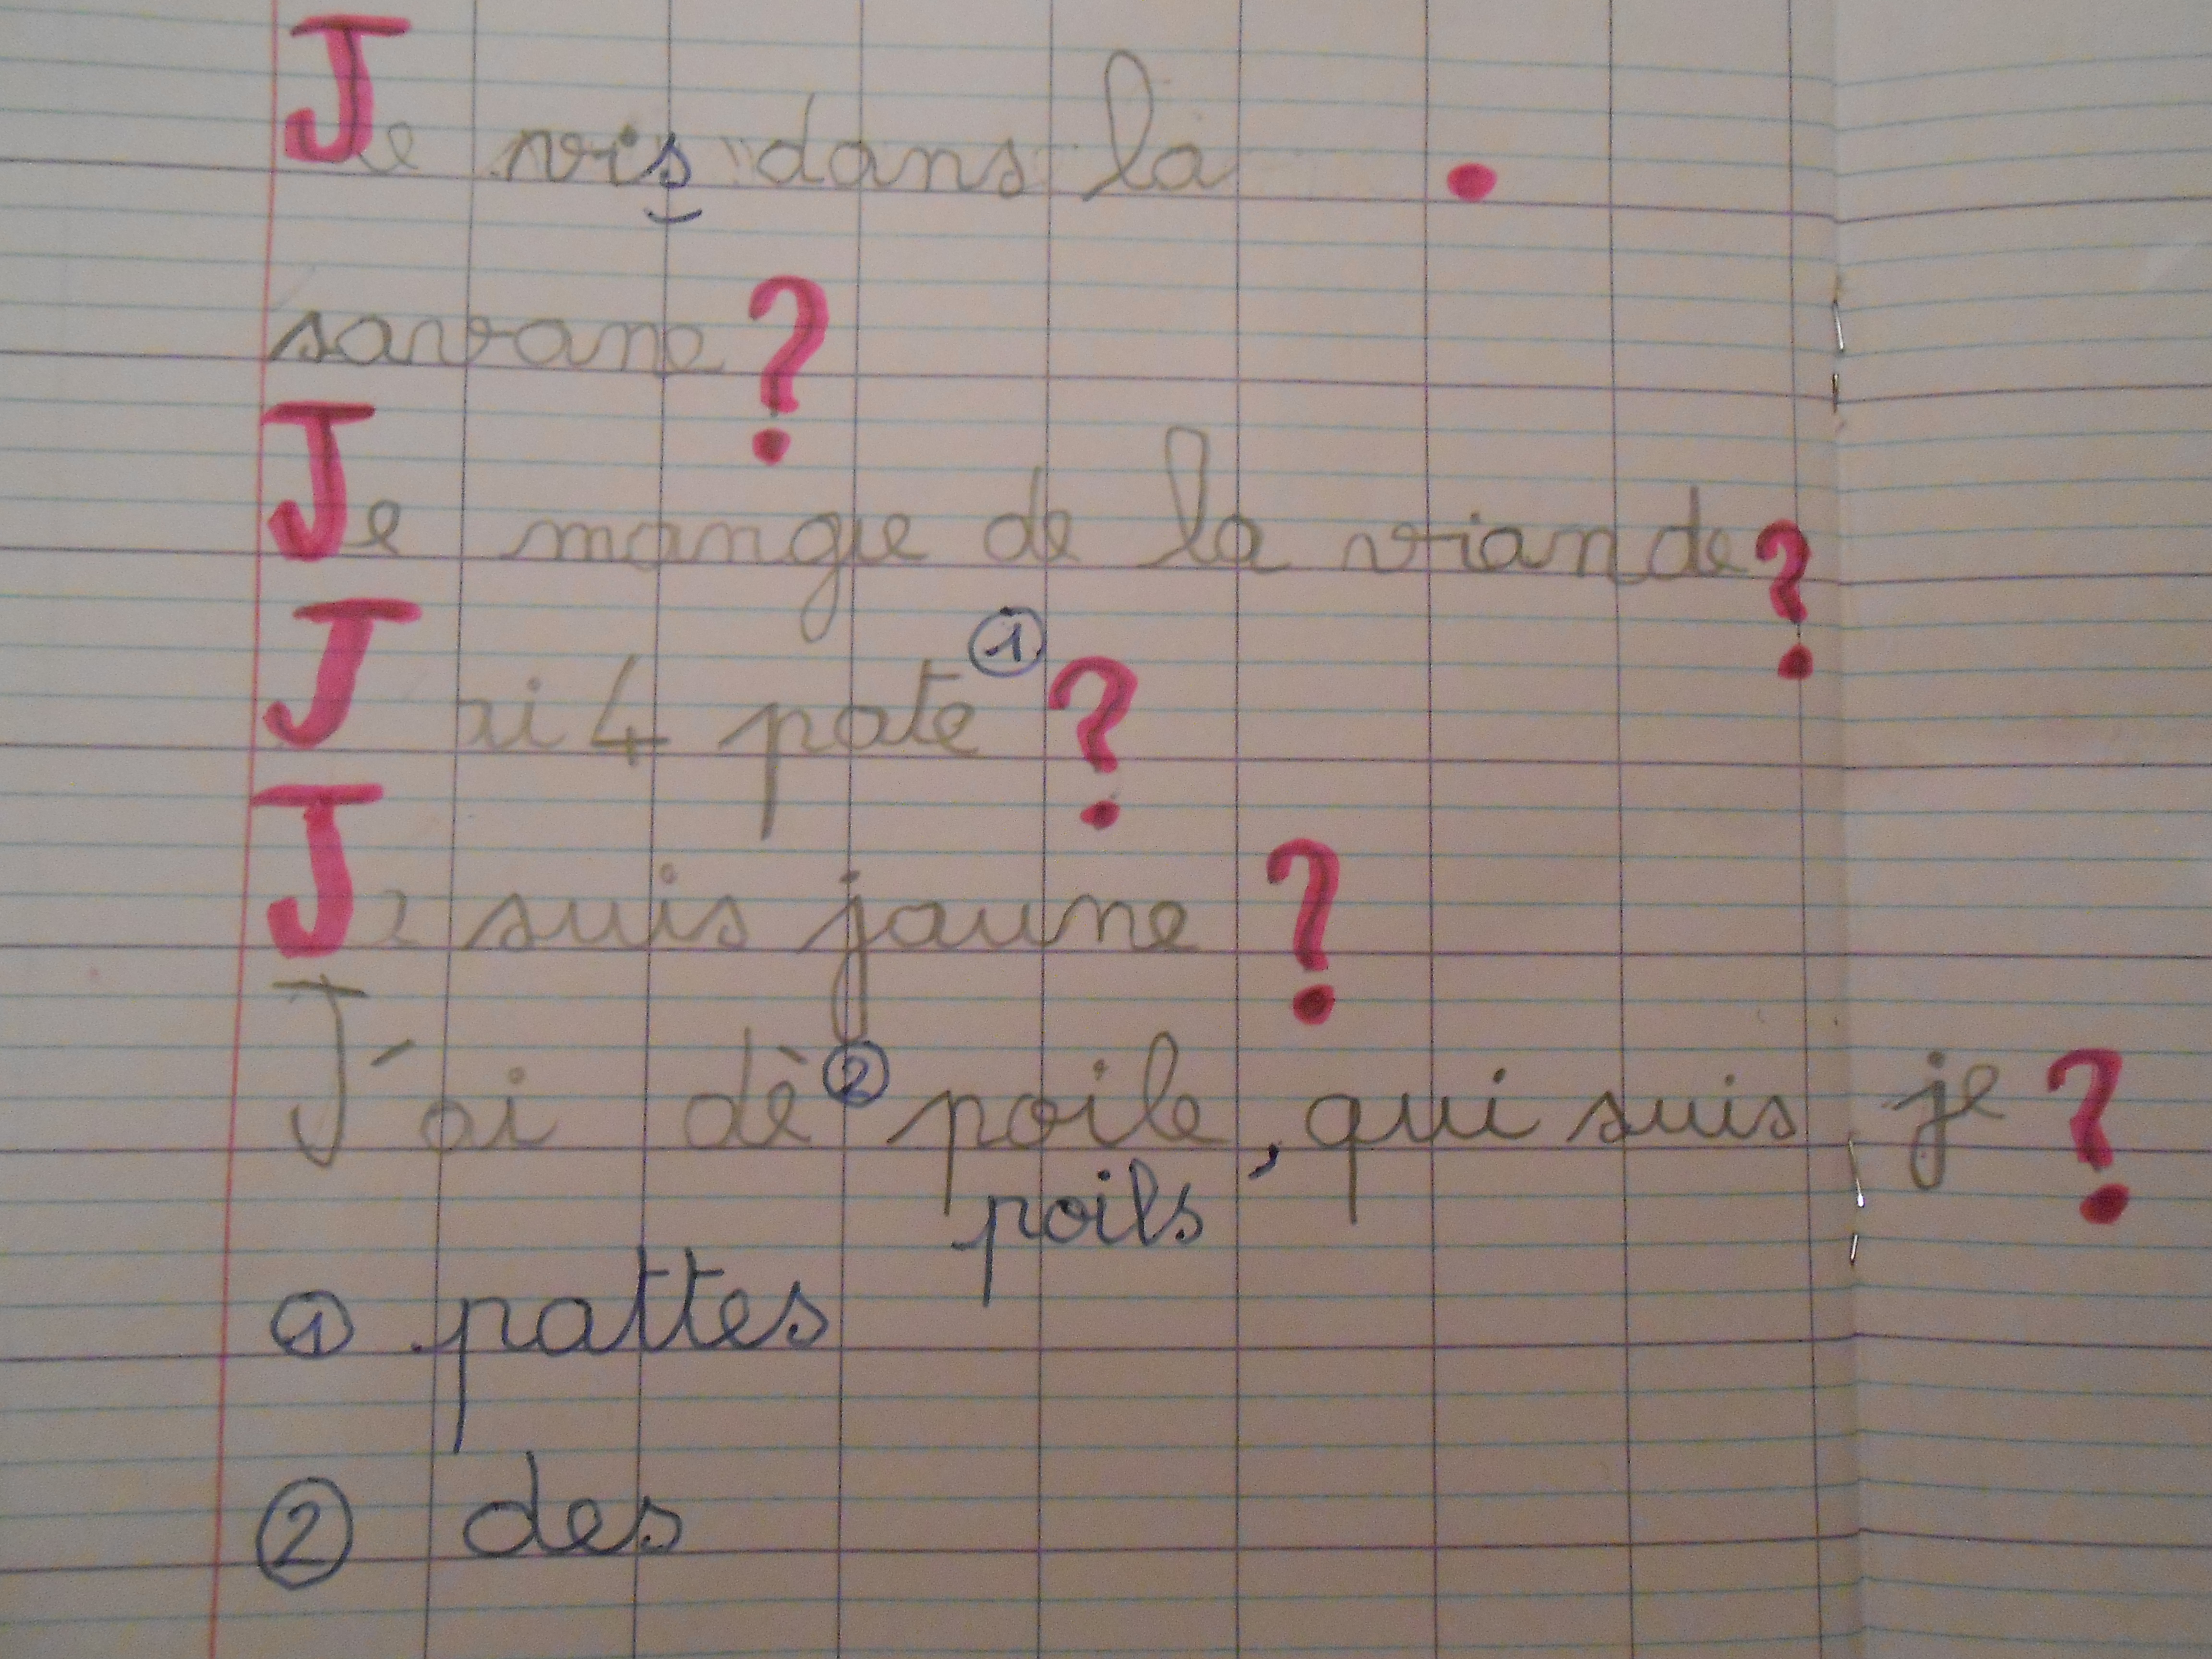 Je vis dans la .
savane ?
Je mange de la viande ?
J ai 4 pate ① ?
Je suis jaune ?
J'ai dè ② poile, qui suis je ?
poils
① pattes
② des